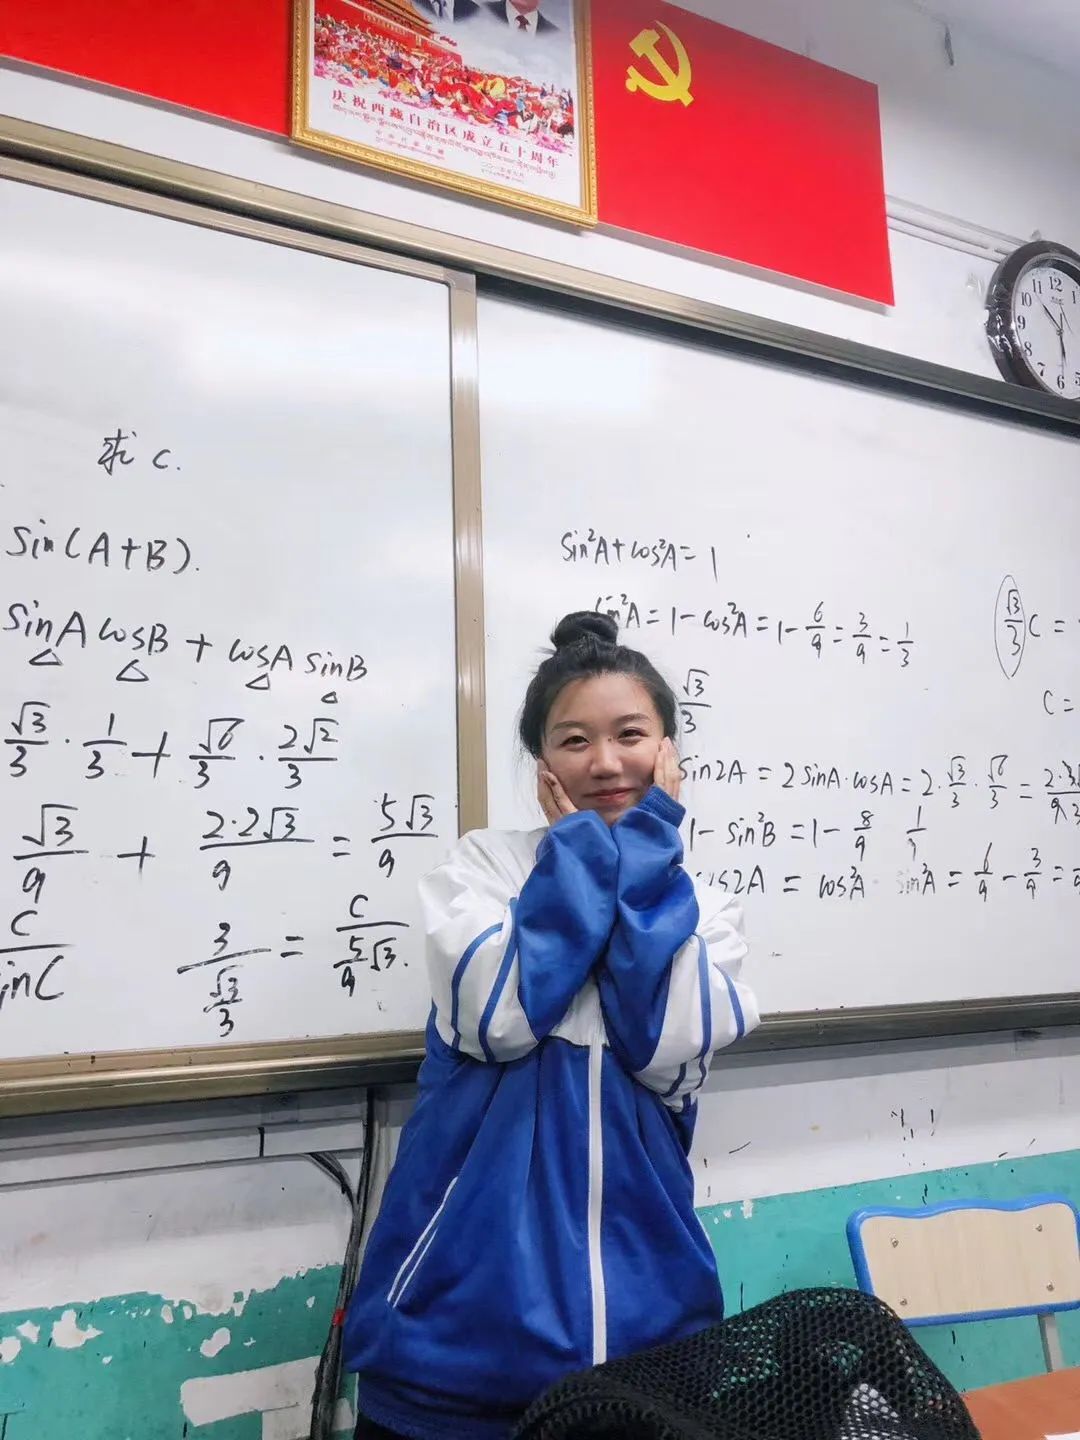 庆祝西藏自治区成立五十周年
求 c.
sin(A+B).
sinA cosB + cosA sinB
√3/3 · 1/3 + √6/3 · 2√2/3
√3/9 + 2·2√3/9 = 5√3/9
3/(√3/3) = c/(5/9 √3).
sin²A+cos²A=1
sin²A=1-cos²A=1-6/9=3/9=1/3
√3/3
√3/3 c =
c =
sin2A = 2sinA·cosA = 2·√3/3·√6/3 =
1-sin²B = 1-8/9 1/9
cos2A = cos²A sin²A = 6/9-3/9=
10 11 12 1
9
8
7 6 5